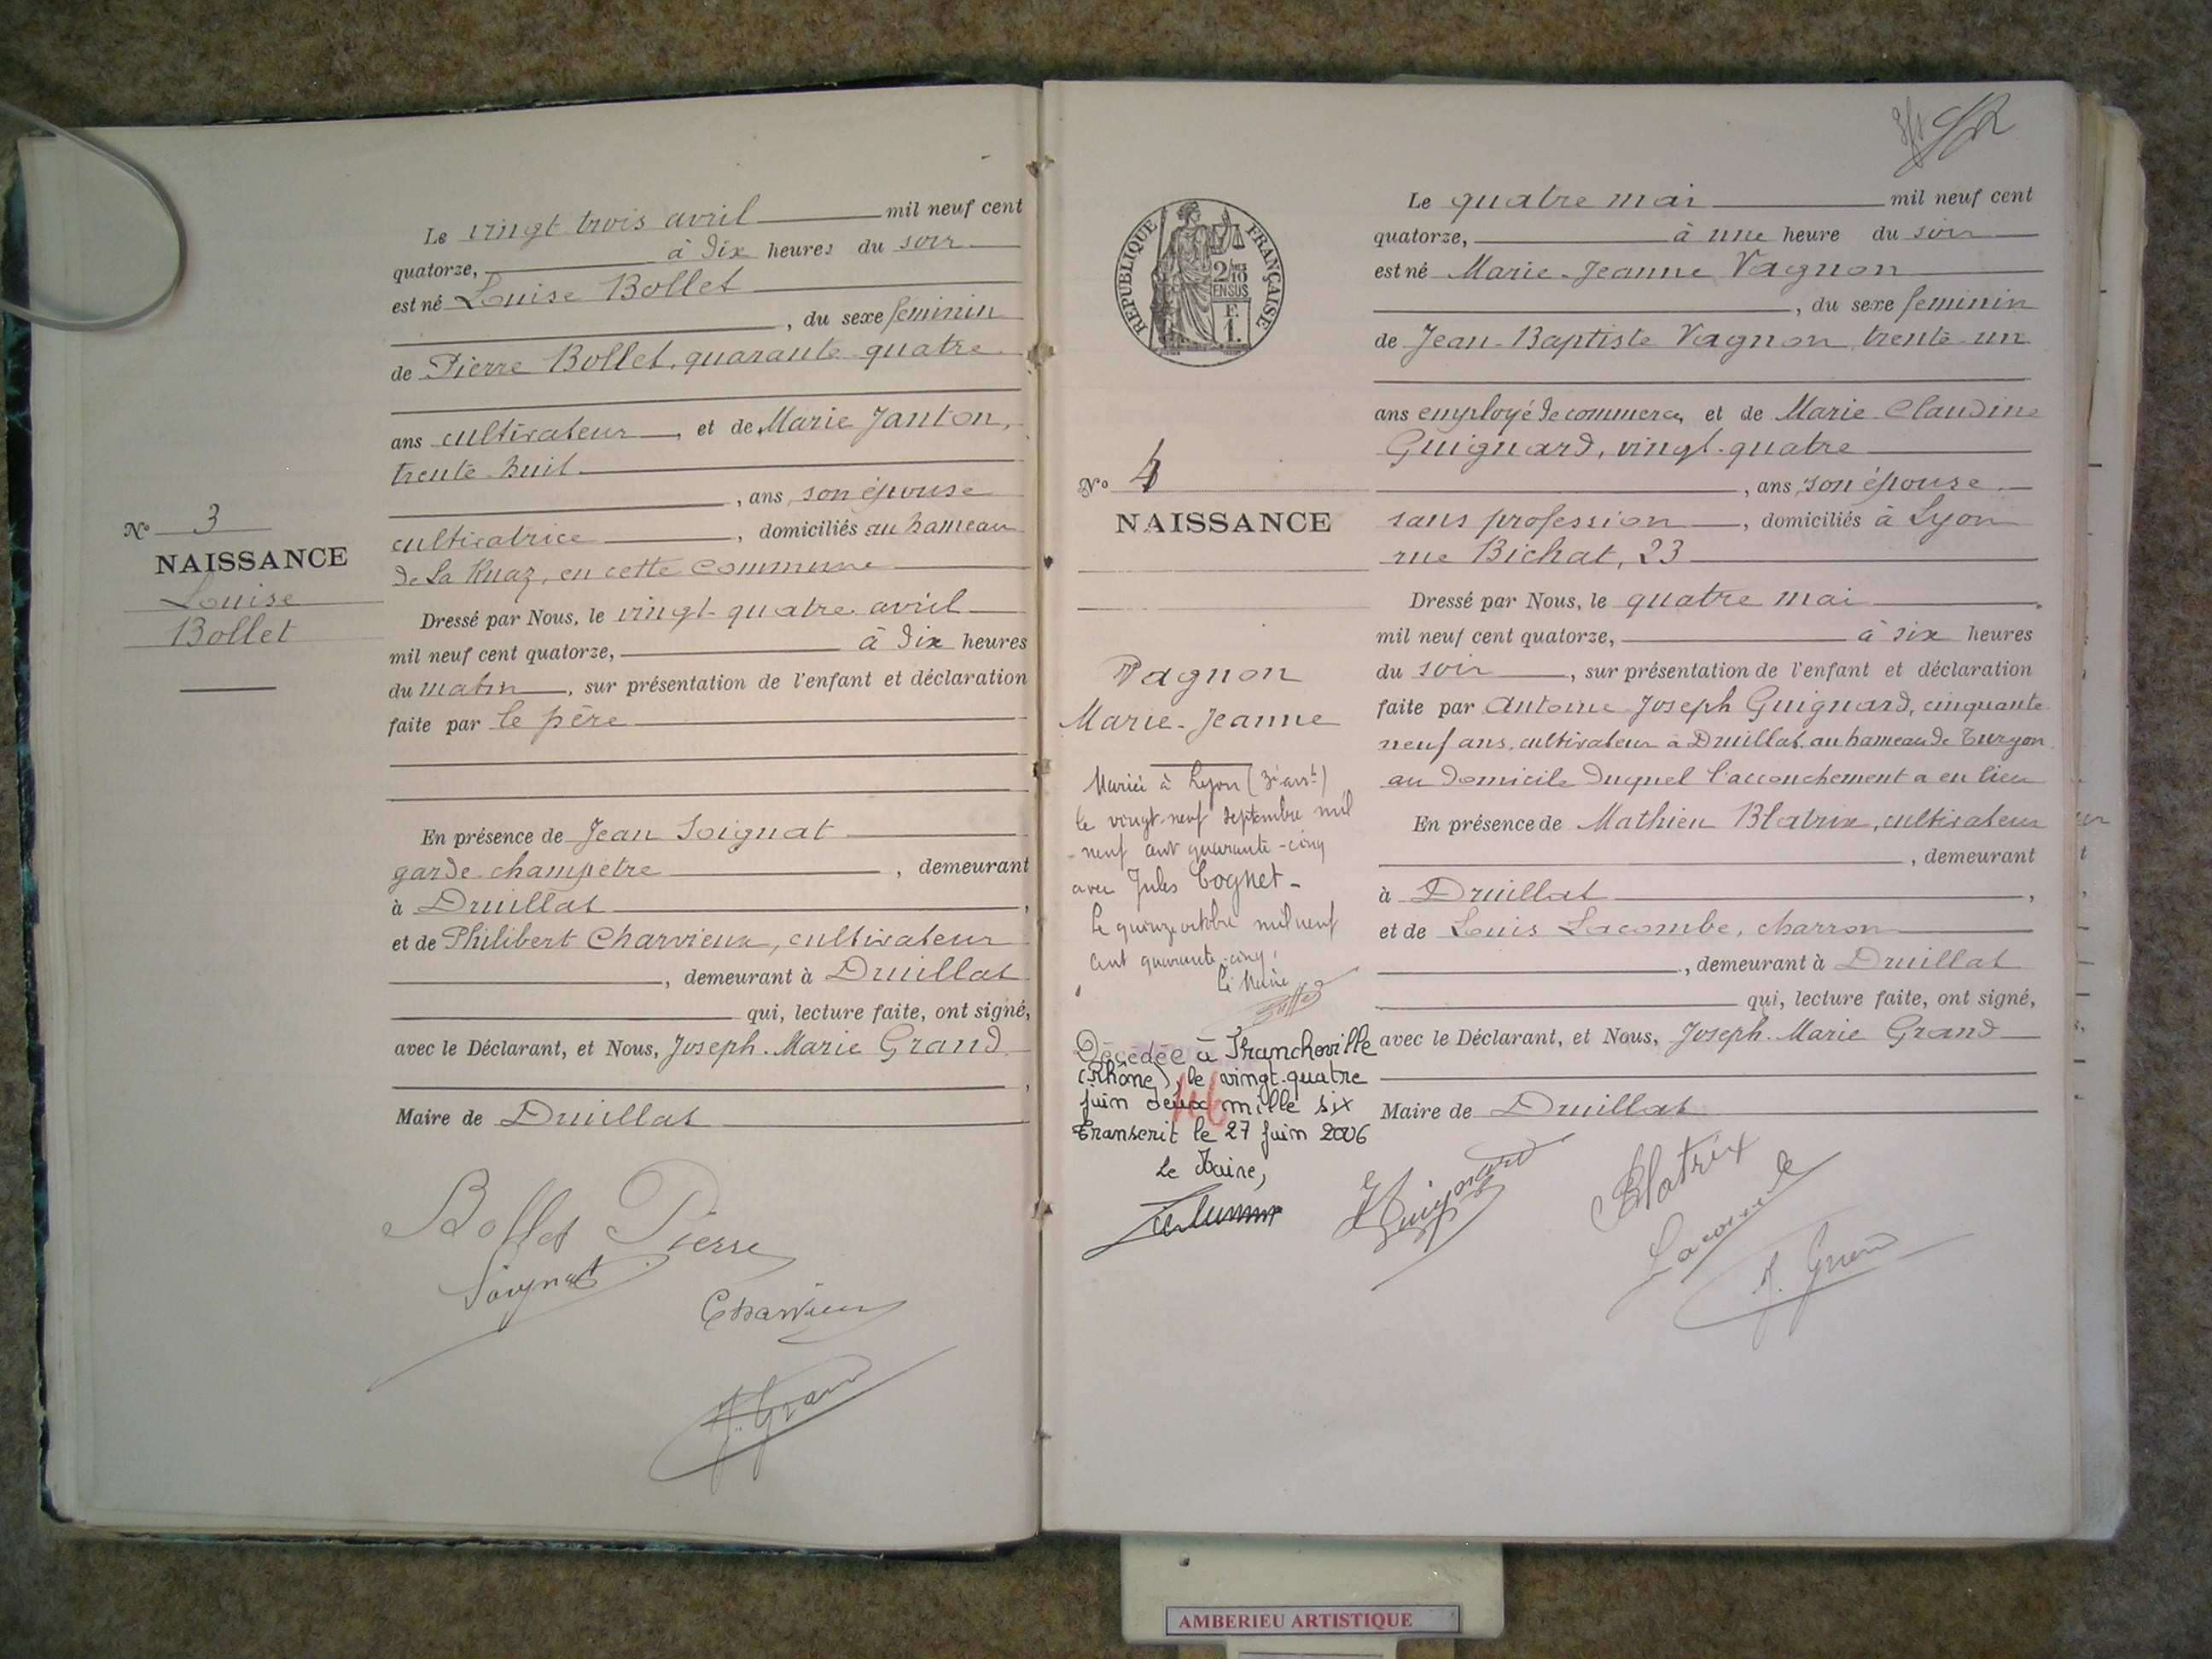 Le vingt trois avril mil neuf cent
quatorze, à dix heures du soir
est né Louise Bollet
, du sexe féminin
de Pierre Bollet, quarante-quatre
ans cultivateur, et de Marie Janton,
trente-huit
, ans, son épouse
cultivatrice, domiciliés au hameau
de La Ruaz, en cette commune
N° 3
NAISSANCE
Louise
Bollet
Dressé par Nous, le vingt-quatre avril
mil neuf cent quatorze, à dix heures
du matin, sur présentation de l'enfant et déclaration
faite par le père
En présence de Jean Soignat
garde-champêtre, demeurant
à Druillat,
et de Philibert Charvieux, cultivateur
, demeurant à Druillat
qui, lecture faite, ont signé,
avec le Déclarant, et Nous, Joseph-Marie Grand
,
Maire de Druillat
Bollet Pierre
Soignat
Charvieux
J. Grand
RÉPUBLIQUE FRANÇAISE
2/10 EN SUS
N° 4
NAISSANCE
Vagnon
Marie-Jeanne
Mariée à Lyon (3e arrt)
le vingt-neuf septembre mil
neuf cent quarante-cinq
avec Jules Cognet-
Le quinze octobre mil neuf
cent quarante-cinq,
Le Maire
Décédée à Francheville
(Rhône), le vingt-quatre
juin deux mille six
Transcrit le 27 juin 2006
Le Maire,
Le quatre mai mil neuf cent
quatorze, à une heure du soir
est né Marie-Jeanne Vagnon
, du sexe féminin
de Jean-Baptiste Vagnon trente-un
ans employé de commerce, et de Marie Claudine
Guignard, vingt-quatre
, ans, son épouse
sans profession, domiciliés à Lyon
rue Bichat, 23
Dressé par Nous, le quatre mai
mil neuf cent quatorze, à six heures
du soir, sur présentation de l'enfant et déclaration
faite par Antoine-Joseph Guignard, cinquante
neuf ans, cultivateur à Druillat, au hameau de Turgon
au domicile duquel l'accouchement a eu lieu
En présence de Mathieu Blatrix, cultivateur
, demeurant
à Druillat,
et de Louis Lacombe, charron
, demeurant à Druillat
qui, lecture faite, ont signé,
avec le Déclarant, et Nous, Joseph-Marie Grand
Maire de Druillat
Guignard
Blatrix
Lacombe
J. Grand
AMBERIEU ARTISTIQUE